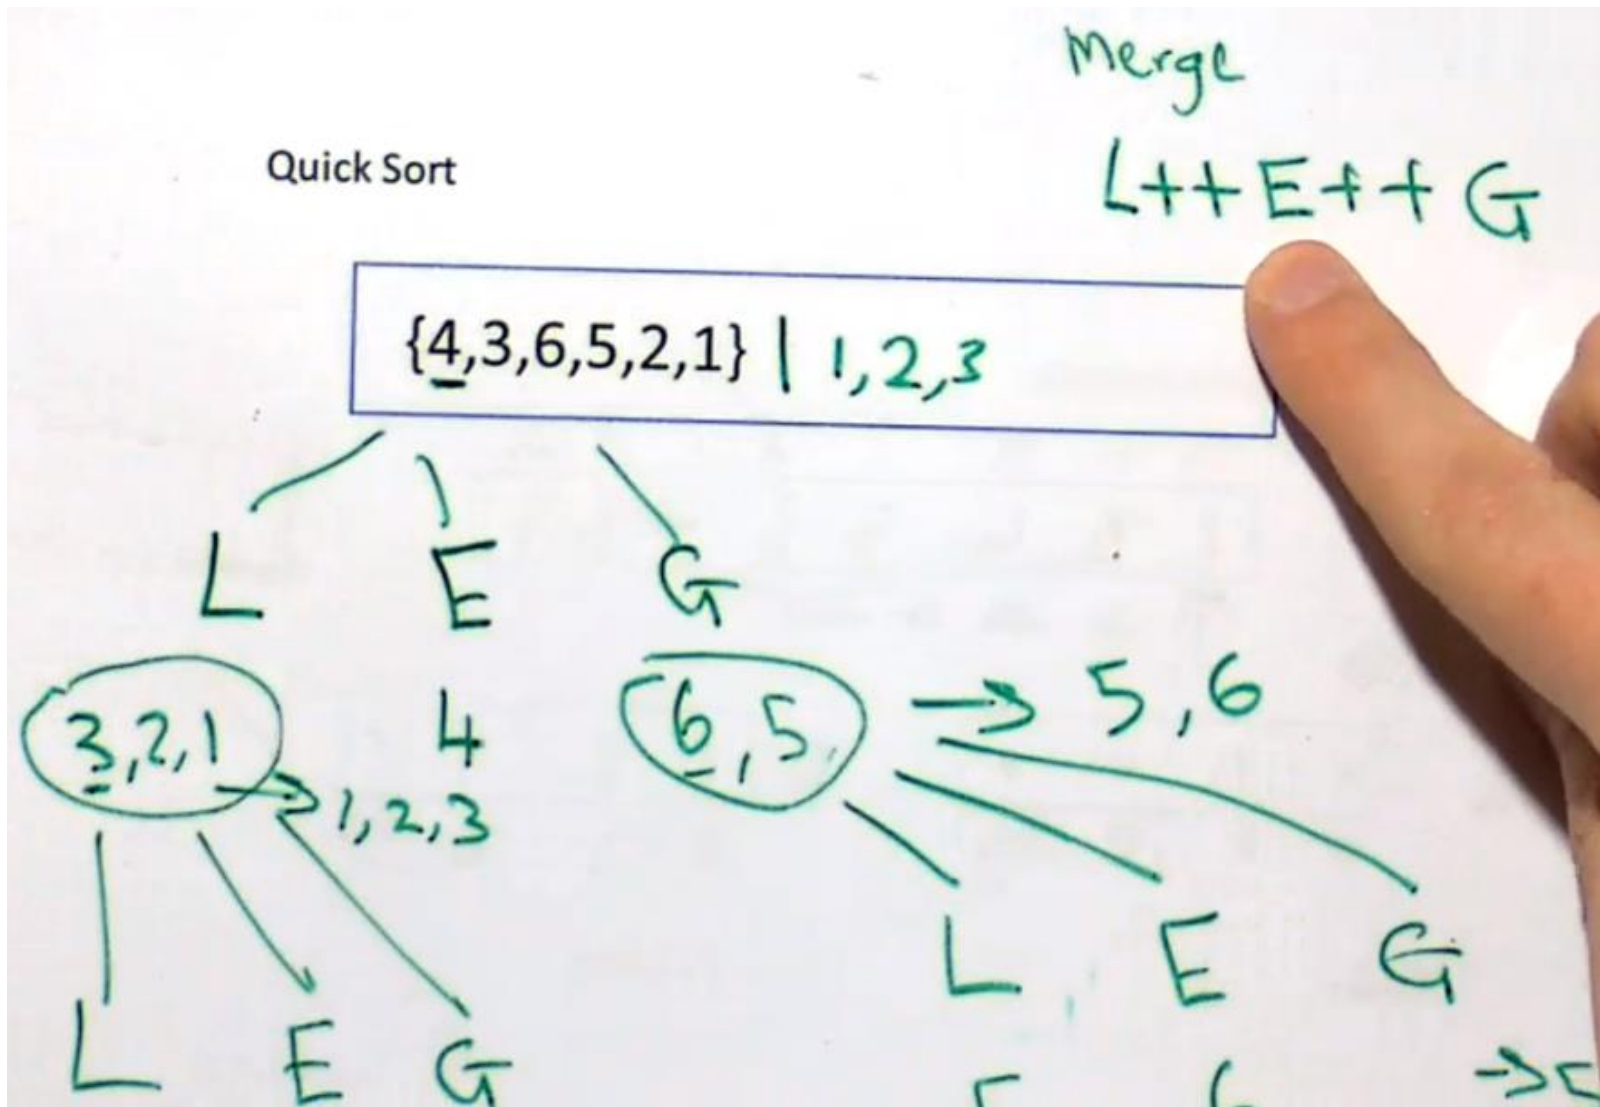 Merge
L++E++G
Quick Sort
{4,3,6,5,2,1} | 1,2,3
L E G
3,2,1 4 6,5 → 5,6
→ 1,2,3
L E G
L E G